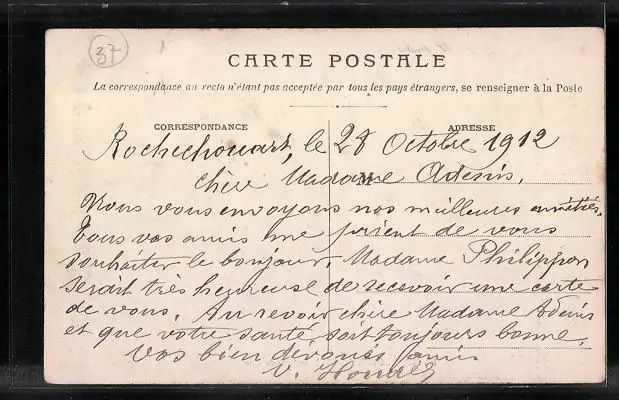 37
CARTE POSTALE
La correspondance au recto n'étant pas acceptée par tous les pays étrangers, se renseigner à la Poste
CORRESPONDANCE
ADRESSE
Rochechouart, le 28 Octobre 1912
M
Chère Madame Adenis,
Nous vous envoyons nos meilleures amitiés.
Tous vos amis me prient de vous
souhaiter le bonjour. Madame Philippon
serait très heureuse de recevoir une carte
de vous. Au revoir chère Madame Adenis
et que votre santé soit toujours bonne.
Vos bien dévoués amis
V.